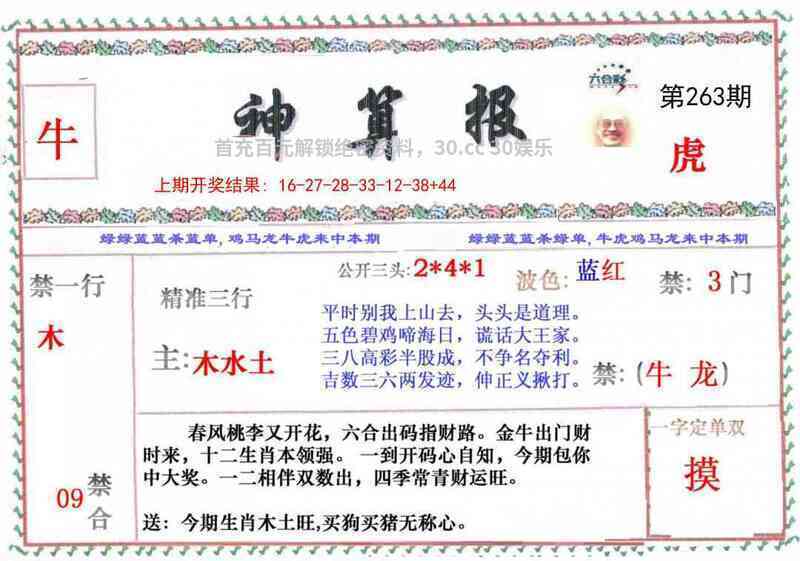 六合彩
第263期
神算报
牛
首充百元解锁绝密资料，30.cc 30娱乐
虎
上期开奖结果：16-27-28-33-12-38+44
绿绿蓝蓝杀蓝单,鸡马龙牛虎来中本期
绿绿蓝蓝杀绿单,牛虎鸡马龙来中本期
禁一行
木
09 禁合
精准三行
主:木水土
公开三头:2*4*1
波色:蓝红
禁:3门
平时别我上山去，头头是道理。
五色碧鸡啼海日，谎话大王家。
三八高彩半股成，不争名夺利。
吉数三六两发迹，伸正义揪打。
禁:(牛 龙)
春风桃李又开花，六合出码指财路。金牛出门财
时来，十二生肖本领强。 一到开码心自知，今期包你
中大奖。一二相伴双数出，四季常青财运旺。
送：今期生肖木土旺,买狗买猪无称心。
一字定单双
摸